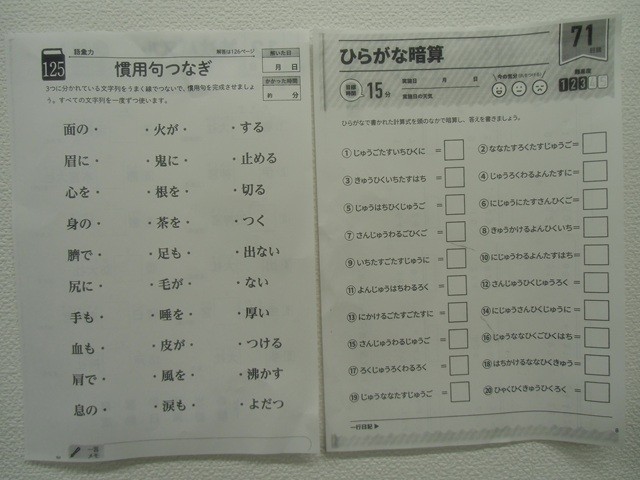 語彙力
解答は126ページ
125
慣用句つなぎ
解いた日
月 日
かかった時間
約 分
3つに分かれている文字列をうまく線でつないで、慣用句を完成させましょ
う。すべての文字列を一度ずつ使います。
面の・ ・火が・ ・する
眉に・ ・鬼に・ ・止める
心を・ ・根を・ ・切る
身の・ ・茶を・ ・つく
臍で・ ・足も・ ・出ない
尻に・ ・毛が・ ・ない
手も・ ・唾を・ ・厚い
血も・ ・皮が・ ・つける
肩で・ ・風を・ ・沸かす
息の・ ・涙も・ ・よだつ
一言
メモ
ひらがな暗算
71
目標
時間
15分
実施日 月 日
実施日の天気
今の気分
難易度
123
ひらがなで書かれた計算式を頭のなかで暗算し、答えを書きましょう。
①じゅうごたすいちひくに =
②ななたすろくたすじゅうご=
③きゅうひくいちたすはち =
④じゅうろくわるよんたすに=
⑤じゅうはちひくじゅうご =
⑥にじゅうにたすさんひくご=
⑦さんじゅうわるごひくご =
⑧きゅうかけるよんひくいち=
⑨いちたすごたすじゅうに =
⑩にじゅうわるよんたすはち=
⑪よんじゅうはちわるろく =
⑫さんじゅうひくじゅうろく=
⑬にかけるごたすごたすに =
⑭にじゅうさんひくじゅうに=
⑮さんじゅうわるじゅうご =
⑯じゅうななひくごひくはち=
⑰ろくじゅうろくわるろく =
⑱はちかけるななひくきゅう=
⑲じゅうななたすじゅうご =
⑳ひゃくひくきゅうひくろく=
一行日記▶